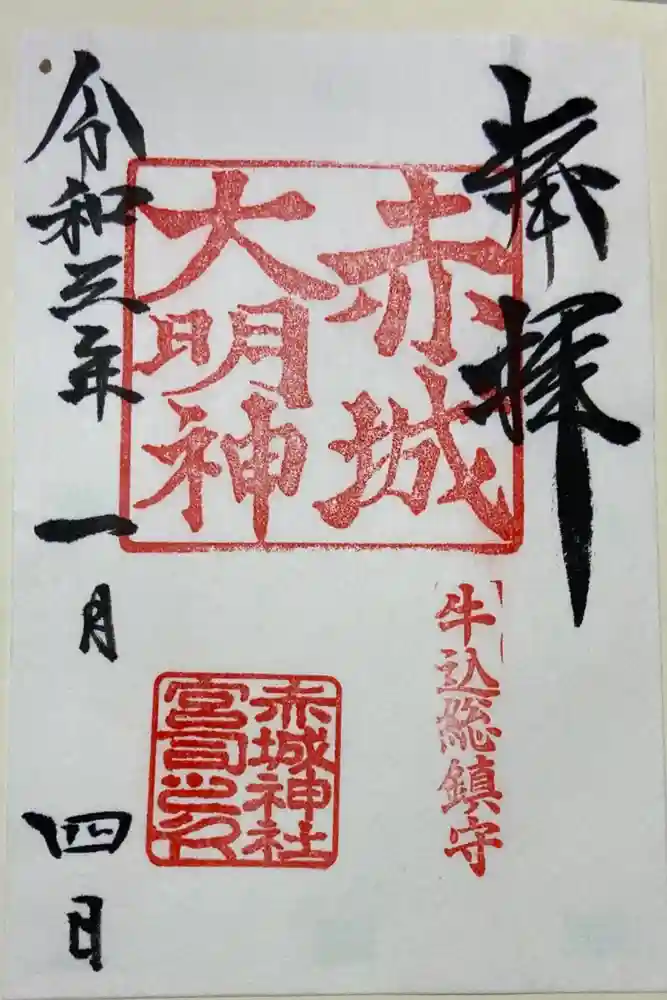 奉拝
赤城
大明神
牛込総鎮守
赤城神社
宮司之印
令和三年
一月
四日